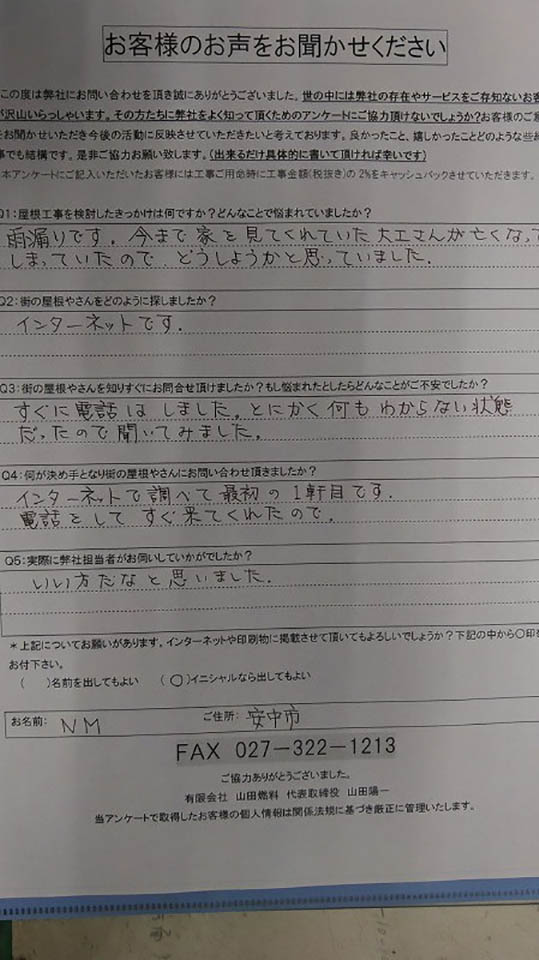 お客様のお声をお聞かせください
この度は弊社にお問い合わせを頂き誠にありがとうございました。世の中には弊社の存在やサービスをご存知ないお客
が沢山いらっしゃいます。その方たちに弊社をよく知って頂くためのアンケートにご協力頂けないでしょうか?お客様のご意
をお聞かせいただき今後の活動に反映させていただきたいと考えております。良かったこと、嬉しかったことどのような些細
事でも結構です。是非ご協力お願い致します。(出来るだけ具体的に書いて頂ければ幸いです)
本アンケートにご記入いただいたお客様には工事ご用命時に工事金額(税抜き)の 2%をキャッシュバックさせていただきます。
Q1:屋根工事を検討したきっかけは何ですか?どんなことで悩まれていましたか?
雨漏りです。今まで家を見てくれていた大工さんが亡くなって
しまっていたので、どうしようかと思っていました。
Q2:街の屋根やさんをどのように探しましたか?
インターネットです。
Q3:街の屋根やさんを知りすぐにお問合せ頂けましたか?もし悩まれたとしたらどんなことがご不安でしたか?
すぐに電話はしました。とにかく何もわからない状態
だったので聞いてみました。
Q4:何が決め手となり街の屋根やさんにお問い合わせ頂きましたか?
インターネットで調べて最初の1軒目です。
電話をしてすぐ来てくれたので。
Q5:実際に弊社担当者がお伺いしていかがでしたか?
いい方だなと思いました。
*上記についてお願いがあります。インターネットや印刷物に掲載させて頂いてもよろしいでしょうか?下記の中から〇印を
お付下さい。
( )名前を出してもよい (○)イニシャルなら出してもよい
お名前: NM ご住所: 安中市
FAX 027-322-1213
ご協力ありがとうございました。
有限会社 山田燃料 代表取締役 山田陽一
当アンケートで取得したお客様の個人情報は関係法規に基づき厳正に管理いたします。